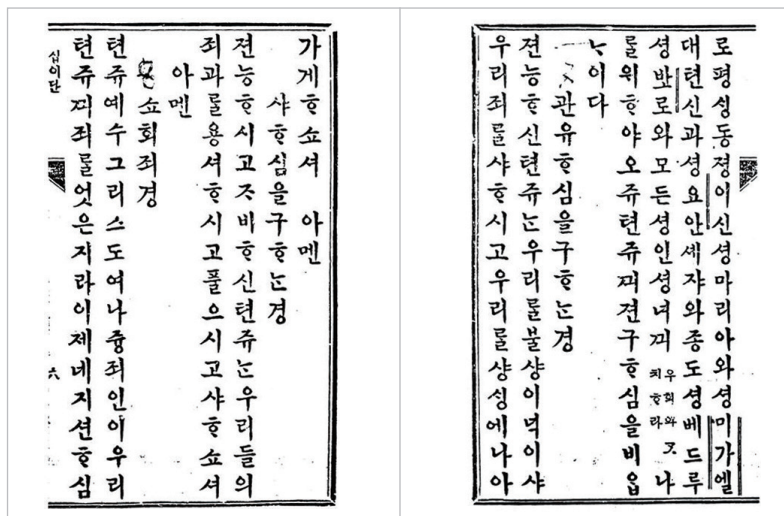 로평싱동졍이신셩마리아와셩미가엘
대텬신과셩요안셰쟈와종도셩베드루
셩바로와모든셩인셩녀ᄭᅴ우희와ᄀᆞᆺ치ᄒᆞ라나
ᄅᆞᆯ위ᄒᆞ야오쥬텬쥬ᄭᅴ젼구ᄒᆞ심을비옵
ᄂᆞ이다
관유ᄒᆞ심을구ᄒᆞᄂᆞᆫ경
젼능ᄒᆞ신텬쥬ᄂᆞᆫ우리ᄅᆞᆯ불샹이넉이샤
우리죄ᄅᆞᆯ샤ᄒᆞ시고우리ᄅᆞᆯ샹싱에나아
가게ᄒᆞ쇼셔 아멘
샤ᄒᆞ심을구ᄒᆞᄂᆞᆫ경
젼능ᄒᆞ시고ᄌᆞ비ᄒᆞ신텬쥬ᄂᆞᆫ우리들의
죄과ᄅᆞᆯ용셔ᄒᆞ시고풀으시고샤ᄒᆞ쇼셔
아멘
쇼회죄경
텬쥬예수그리스도여나즁죄인이우리
텬쥬ᄭᅴ죄ᄅᆞᆯ엇은지라이제네지션ᄒᆞ심
십이단 六